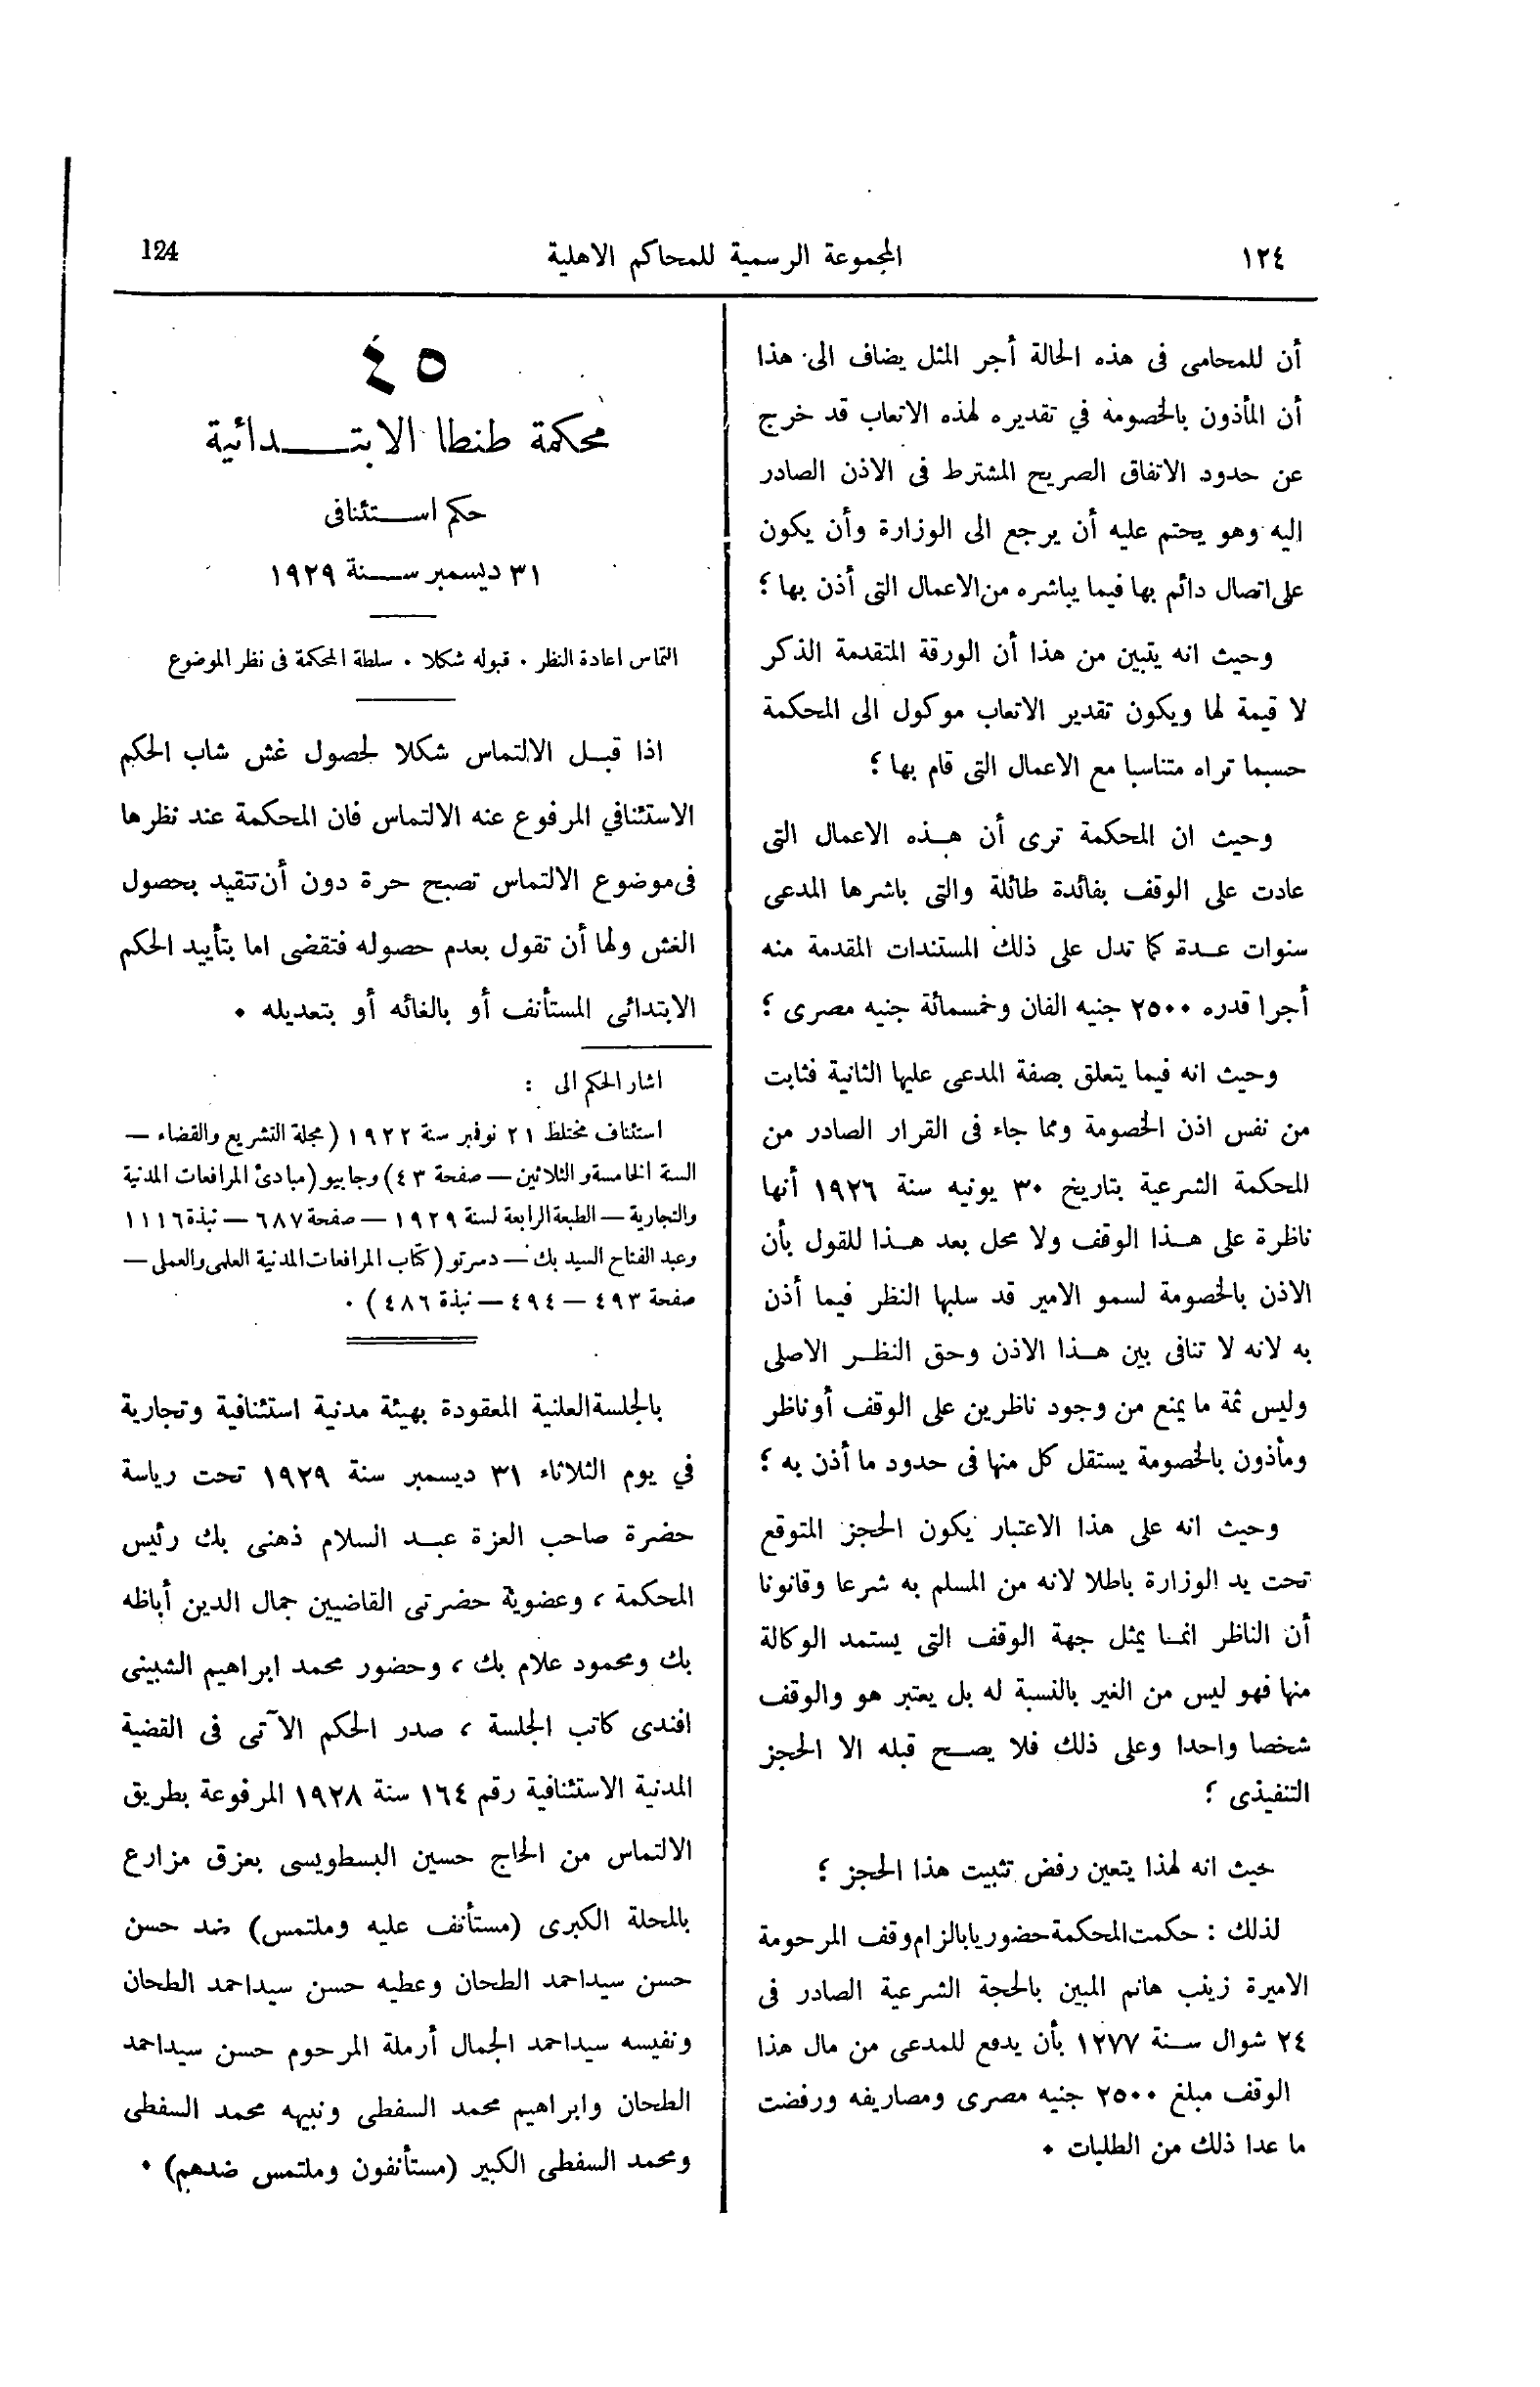 ١٢٤
المجموعة الرسمية للمحاكم الاهلية
124
أن للمحامى فى هذه الحالة أجر المثل يضاف الى هذا
أن المأذون بالخصومة في تقديره لهذه الاتعاب قد خرج
عن حدود الاتفاق الصريح المشترط فى الاذن الصادر
اليه وهو يحتم عليه أن يرجع الى الوزارة وأن يكون
على اتصال دائم بها فيما يباشره من الاعمال التى أذن بها ؛
وحيث انه يتبين من هذا أن الورقة المتقدمة الذكر
لا قيمة لها ويكون تقدير الاتعاب موكول الى المحكمة
حسبما تراه متناسبا مع الاعمال التى قام بها ؛
وحيث ان المحكمة ترى أن هذه الاعمال التى
عادت على الوقف بفائدة طائلة والتى باشرها المدعى
سنوات عدة كما تدل على ذلك المستندات المقدمة منه
أجرا قدره ٢٥٠٠ جنيه الفان وخمسمائة جنيه مصرى ؛
وحيث انه فيما يتعلق بصفة المدعى عليها الثانية فثابت
من نفس اذن الخصومة ومما جاء فى القرار الصادر من
المحكمة الشرعية بتاريخ ٣٠ يونيه سنة ١٩٢٦ أنها
ناظرة على هذا الوقف ولا محل بعد هذا للقول بأن
الاذن بالخصومة لسمو الامير قد سلبها النظر فيما أذن
به لانه لا تنافى بين هذا الاذن وحق النظر الاصلى
وليس ثمة ما يمنع من وجود ناظرين على الوقف أو ناظر
ومأذون بالخصومة يستقل كل منها فى حدود ما أذن به ؛
وحيث انه على هذا الاعتبار يكون الحجز المتوقع
تحت يد الوزارة باطلا لانه من المسلم به شرعا وقانونا
أن الناظر انما يمثل جهة الوقف التى يستمد الوكالة
منها فهو ليس من الغير بالنسبة له بل يعتبر هو والوقف
شخصا واحدا وعلى ذلك فلا يصح قبله الا الحجز
التنفيذى ؛
حيث انه لهذا يتعين رفض تثبيت هذا الحجز ؛
لذلك : حكمت المحكمة حضوريا بالزام وقف المرحومة
الاميرة زينب هانم المبين بالحجة الشرعية الصادر فى
٢٤ شوال سنة ١٢٧٧ بأن يدفع للمدعى من مال هذا
الوقف مبلغ ٢٥٠٠ جنيه مصرى ومصاريفه ورفضت
ما عدا ذلك من الطلبات .
٤٥
محكمة طنطا الابتدائية
حكم استئنافى
٣١ ديسمبر سنة ١٩٢٩
التماس اعادة النظر . قبوله شكلا . سلطة المحكمة فى نظر الموضوع
اذا قبل الالتماس شكلا لحصول غش شاب الحكم
الاستئنافي المرفوع عنه الالتماس فان المحكمة عند نظرها
فى موضوع الالتماس تصبح حرة دون أن تتقيد بحصول
الغش ولها أن تقول بعدم حصوله فتقضى اما بتأييد الحكم
الابتدائى المستأنف أو بالغائه أو بتعديله .
اشار الحكم الى :
استئناف مختلط ٢١ نوفمبر سنة ١٩٢٢ (مجلة التشريع والقضاء —
السنة الخامسة والثلاثين — صفحة ٤٣) وجابيو (مبادئ المرافعات المدنية
والتجارية — الطبعة الرابعة لسنة ١٩٢٩ — صفحة ٦٨٧ — نبذة ١١١٦
وعبد الفتاح السيد بك — دسرتو (كتاب المرافعات المدنية العلمى والعملى —
صفحة ٤٩٣ — ٤٩٤ — نبذة ٤٨٦) .
بالجلسة العلنية المعقودة بهيئة مدنية استئنافية وتجارية
في يوم الثلاثاء ٣١ ديسمبر سنة ١٩٢٩ تحت رياسة
حضرة صاحب العزة عبد السلام ذهنى بك رئيس
المحكمة ، وعضوية حضرتى القاضيين جمال الدين أباظه
بك ومحمود علام بك ، وحضور محمد ابراهيم الشبينى
افندى كاتب الجلسة ، صدر الحكم الآتى فى القضية
المدنية الاستئنافية رقم ١٦٤ سنة ١٩٢٨ المرفوعة بطريق
الالتماس من الحاج حسين البسطويسى بعزق مزارع
بالمحلة الكبرى (مستأنف عليه وملتمس) ضد حسن
حسن سيداحمد الطحان وعطيه حسن سيداحمد الطحان
ونفيسه سيداحمد الجمال أرملة المرحوم حسن سيداحمد
الطحان وابراهيم محمد السفطى ونبيهه محمد السفطى
ومحمد السفطى الكبير (مستأنفون وملتمس ضدهم) .